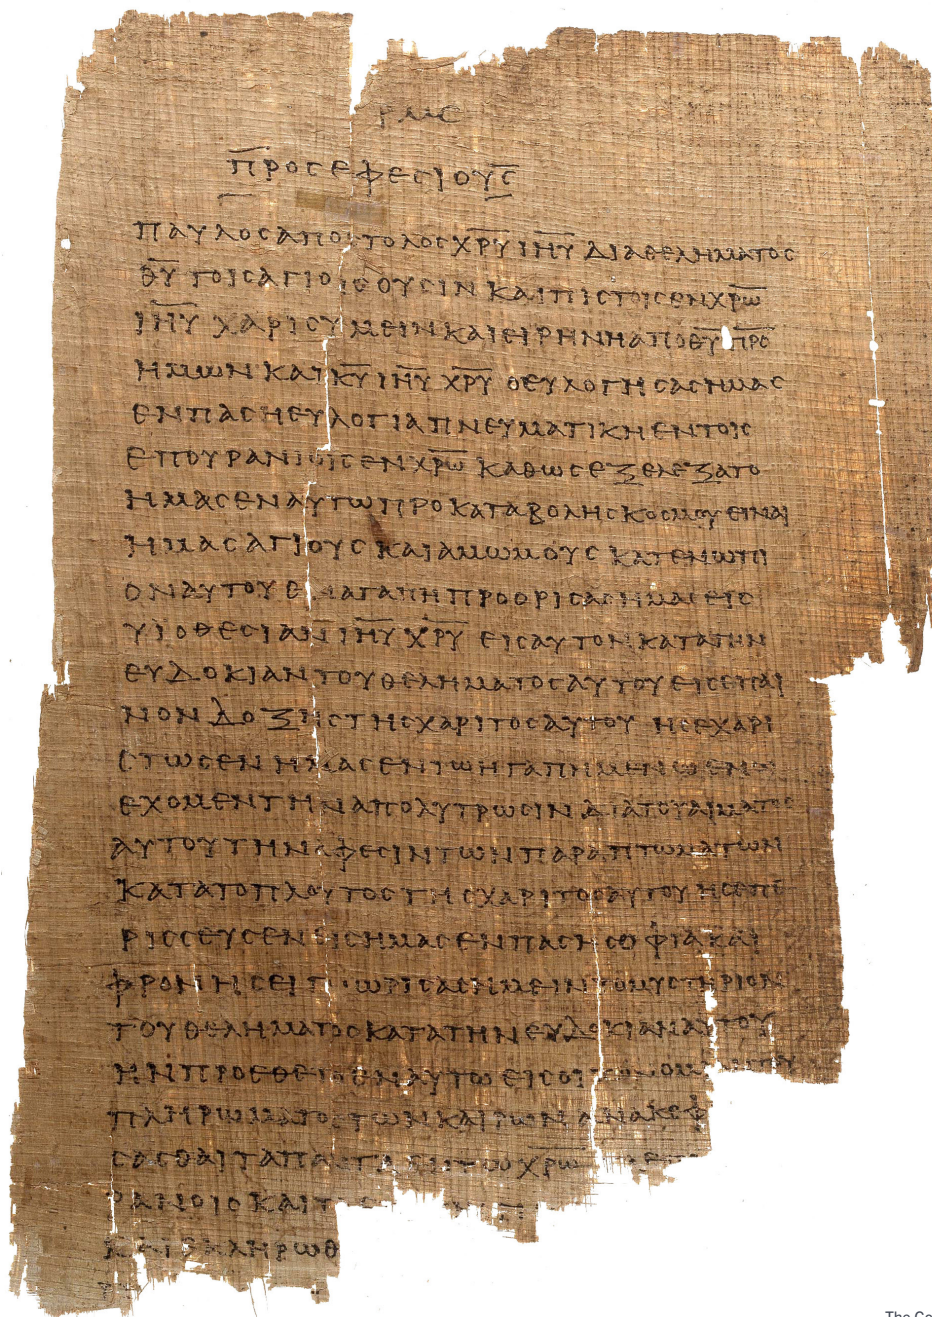 ΡΜϚ
ΠΡΟΣ ΕΦΕΣΙΟΥΣ
ΠΑΥΛΟϹ ΑΠΟϹΤΟΛΟϹ Χ̅Ρ̅Υ̅ Ι̅Η̅Υ̅ ΔΙΑ ΘΕΛΗΜΑΤΟϹ
Θ̅Υ̅ ΤΟΙϹ ΑΓΙΟΙϹ ΟΥϹΙΝ ΚΑΙ ΠΙϹΤΟΙϹ ΕΝ Χ̅Ρ̅Ω̅
Ι̅Η̅Υ̅ ΧΑΡΙϹ ΥΜΕΙΝ ΚΑΙ ΕΙΡΗΝΗ ΑΠΟ Θ̅Υ̅ Π̅Ρ̅Ο̅
ΗΜΩΝ ΚΑΙ Κ̅Υ̅ Ι̅Η̅Υ̅ Χ̅Ρ̅Υ̅ Ο ΕΥΛΟΓΗϹΑϹ ΗΜΑϹ
ΕΝ ΠΑϹΗ ΕΥΛΟΓΙΑ ΠΝΕΥΜΑΤΙΚΗ ΕΝ ΤΟΙϹ
ΕΠΟΥΡΑΝΙΟΙϹ ΕΝ Χ̅Ρ̅Ω̅ ΚΑΘΩϹ ΕΞΕΛΕΞΑΤΟ
ΗΜΑϹ ΕΝ ΑΥΤΩ ΠΡΟ ΚΑΤΑΒΟΛΗϹ ΚΟϹΜΟΥ ΕΙΝΑΙ
ΗΜΑϹ ΑΓΙΟΥϹ ΚΑΙ ΑΜΩΜΟΥϹ ΚΑΤΕΝΩΠΙ
ΟΝ ΑΥΤΟΥ ΕΝ ΑΓΑΠΗ ΠΡΟΟΡΙϹΑϹ ΗΜΑϹ ΕΙϹ
ΥΙΟΘΕϹΙΑΝ Ι̅Η̅Υ̅ Χ̅Ρ̅Υ̅ ΕΙϹ ΑΥΤΟΝ ΚΑΤΑ ΤΗΝ
ΕΥΔΟΚΙΑΝ ΤΟΥ ΘΕΛΗΜΑΤΟϹ ΑΥΤΟΥ ΕΙϹ ΕΠΑΙ
ΝΟΝ ΔΟΞΗϹ ΤΗϹ ΧΑΡΙΤΟϹ ΑΥΤΟΥ ΗϹ ΕΧΑΡΙ
ϹΤΩϹΕΝ ΗΜΑϹ ΕΝ ΤΩ ΗΓΑΠΗΜΕΝΩ ΕΝ Ω
ΕΧΟΜΕΝ ΤΗΝ ΑΠΟΛΥΤΡΩϹΙΝ ΔΙΑ ΤΟΥ ΑΙΜΑΤΟϹ
ΑΥΤΟΥ ΤΗΝ ΑΦΕϹΙΝ ΤΩΝ ΠΑΡΑΠΤΩΜΑΤΩΝ
ΚΑΤΑ ΤΟ ΠΛΟΥΤΟϹ ΤΗϹ ΧΑΡΙΤΟϹ ΑΥΤΟΥ ΗϹ ΕΠΕ
ΡΙϹϹΕΥϹΕΝ ΕΙϹ ΗΜΑϹ ΕΝ ΠΑϹΗ ϹΟΦΙΑ ΚΑΙ
ΦΡΟΝΗϹΕΙ ΓΝΩΡΙϹΑϹ ΗΜΕΙΝ ΤΟ ΜΥϹΤΗΡΙΟΝ
ΤΟΥ ΘΕΛΗΜΑΤΟϹ ΚΑΤΑ ΤΗΝ ΕΥΔΟΚΙΑΝ ΑΥΤΟΥ
ΗΝ ΠΡΟΕΘΕΤΟ ΕΝ ΑΥΤΩ ΕΙϹ
ΠΛΗΡΩΜΑΤΟϹ ΤΩΝ ΚΑΙΡΩΝ ΑΝΑΚΕΦ
ϹΑϹΘΑΙ ΤΑ ΠΑΝΤΑ ΕΝ ΤΩ Χ̅Ρ̅Ω̅
ΡΑΝΟΙϹ ΚΑΙ
ΕΚΛΗΡΩΘ